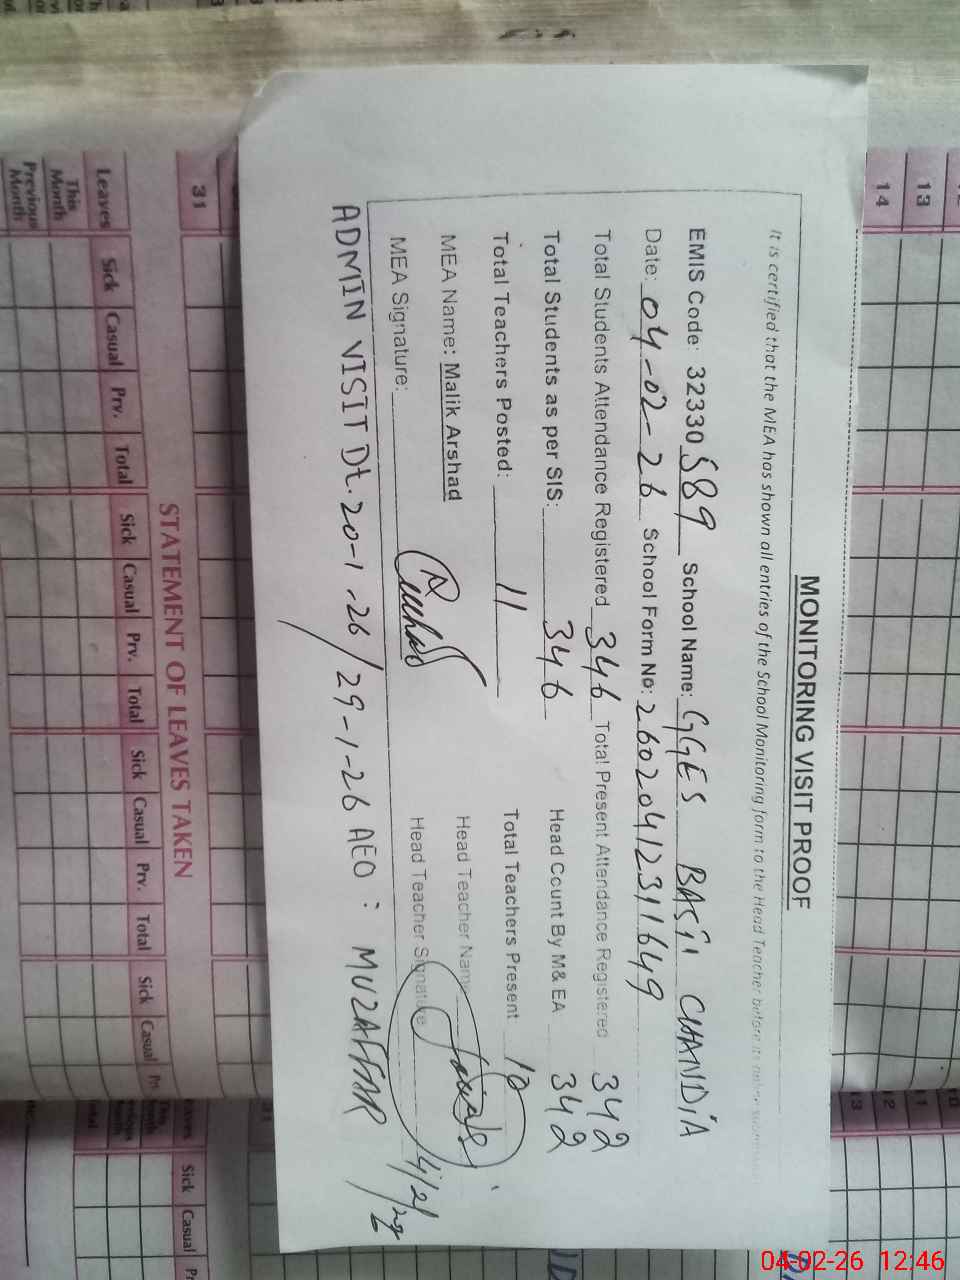 MONITORING VISIT PROOF
It is certified that the MEA has shown all entries of the School Monitoring form to the Head Teacher before its online
EMIS Code: 32330589 School Name: GGES BASTI CHANDIA
Date: 04-02-26 School Form No: 26020412311649
Total Students Attendance Registered 346 Total Present Attendance Registered 342
Total Students as per SIS: 346 Head Count By M& EA 342
Total Teachers Posted: 11 Total Teachers Present 10
MEA Name: Malik Arshad Head Teacher Name
MEA Signature: Head Teacher Signature 4/2/26
ADMIN VISIT Dt. 20-1-26/29-1-26 AEO: MUZAFFAR
STATEMENT OF LEAVES TAKEN
Leaves Sick Casual Prv. Total Sick Casual Prv. Total Sick Casual Prv. Total Sick Casual
This Month
Previous Month
31
14
13
11
12
13
Sick Casual
04-02-26 12:46